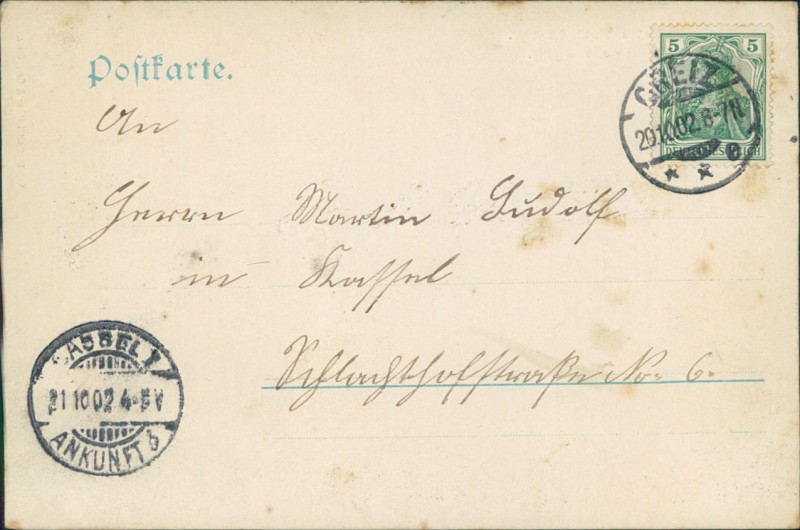 Postkarte.
5 5
DEUTSCHES REICH
GREIZ
20.10.02. 6-7N.
* * c
An
Herrn Martin Ludolf
in Kassel
Schlachthofstraße No. 6.
CASSEL 1
21 10 02 4-5V
ANKUNFT b